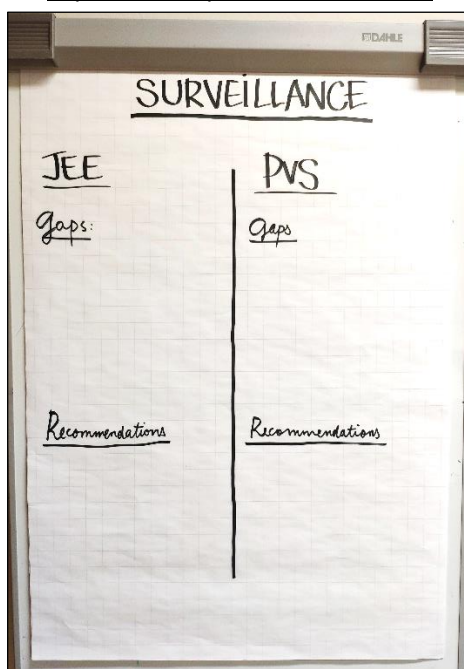 DAHLE
SURVEILLANCE
JEE
Gaps:
Recommendations
PVS
Gaps
Recommendations